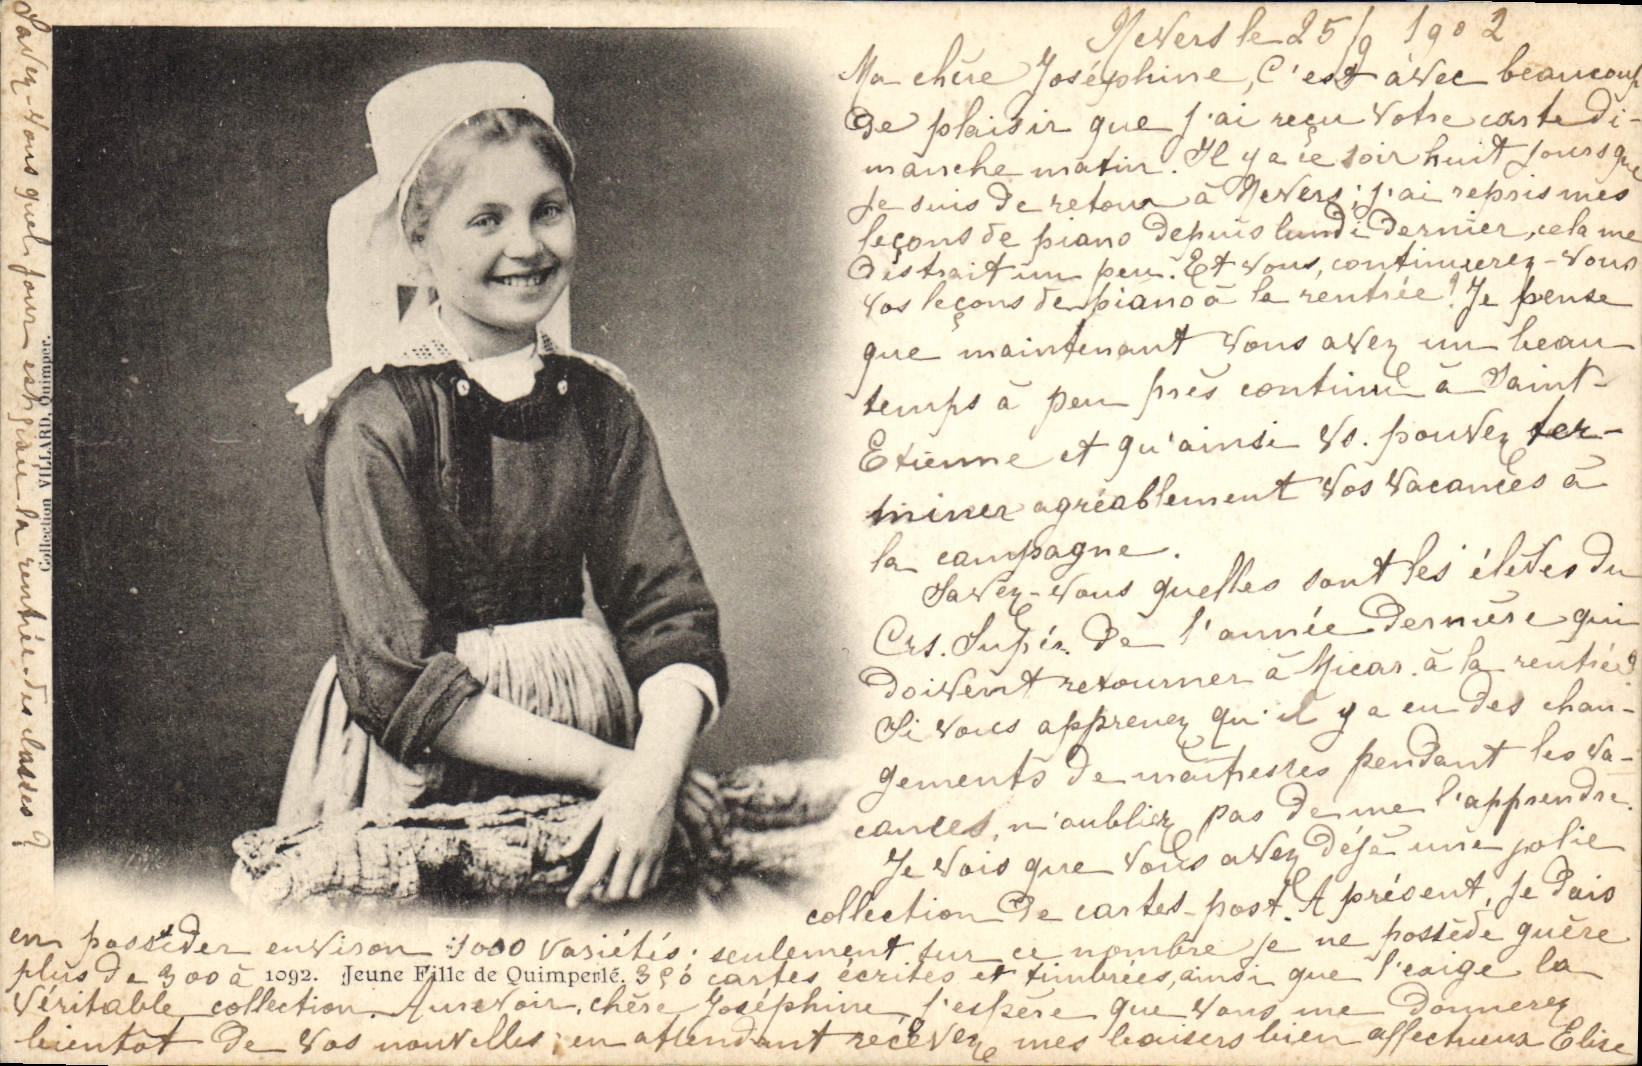 Nevers le 25/9 1902
Ma chère Joséphine, C'est avec beaucoup
de plaisir que j'ai reçu votre carte di-
manche matin. Il y a ce soir huit jours que
je suis de retour à Nevers; j'ai repris mes
leçons de piano depuis lundi dernier, cela me
distrait un peu. Et vous, continuerez-vous
vos leçons de piano à la rentrée? Je pense
que maintenant vous avez un beau
temps à peu près continu à Saint-
Etienne et qu'ainsi vs. pouvez ter-
miner agréablement vos vacances à
la campagne.
Savez-vous quelles sont les élèves du
Crs. Supér. de l'année dernière qui
doivent retourner à Micar. à la rentrée?
Si vous apprenez qu'il y a eu des chan-
gements de maîtresses pendant les va-
cances, n'oubliez pas de me l'apprendre.
Je vois que vous avez déjà une jolie
collection de cartes-post. A présent, je dois
en posséder environ 1000 variétés; seulement sur ce nombre je ne possède guère
plus de 300 à 350 cartes écrites et timbrées, ainsi que l'exige la
véritable collection. Au revoir, chère Joséphine, j'espère que vous me donnerez
bientôt de vos nouvelles; en attendant recevez mes baisers bien affectueux Elise
Savez-vous quel jour est fixée la rentrée des classes?
Collection VILLARD, Quimper.
1092. Jeune Fille de Quimperlé.